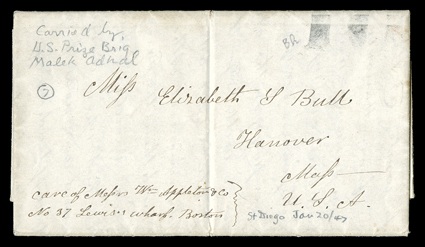 Carried by,
U.S. Prize Brig
Malek Adhal
7
BR
Miss Elizabeth S Bull
Hanover
Mass
U.S.A.
care of Messrs Wm Appleton & Co
No 37 Lewis's wharf. Boston
St Diego Jan 20/47